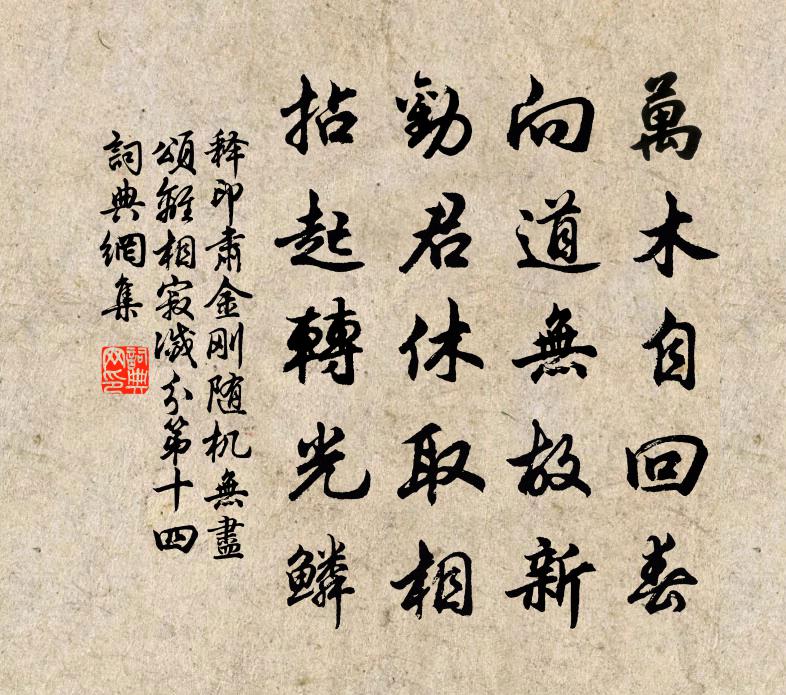 萬木自回春
向道無故新
勸君休取相
拈起轉光鱗
释印肃金刚随机無盡
頌離相寂滅分第十四
詞典網集
詞典网印